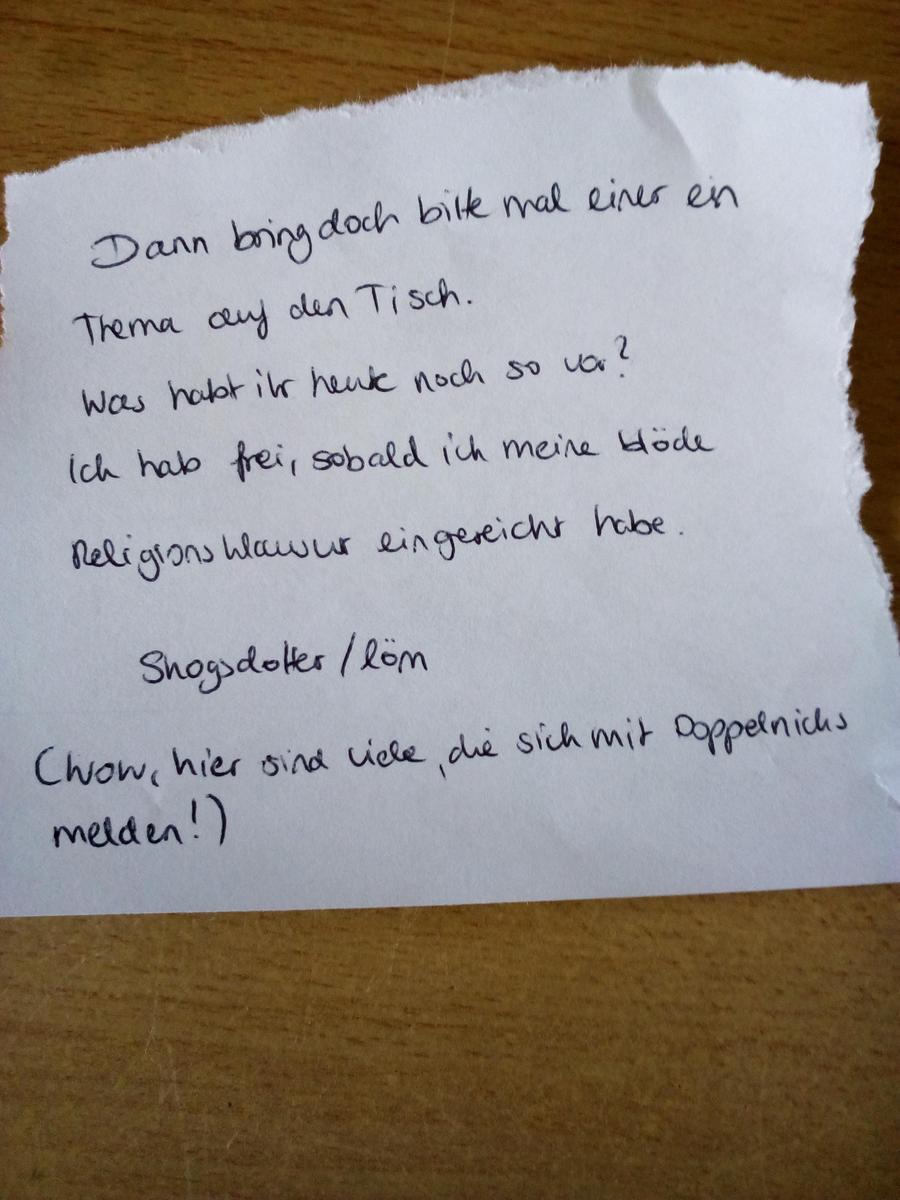 Dann bring doch bitte mal einer ein
Thema auf den Tisch.
Was habt ihr heute noch so vor?
Ich hab frei, sobald ich meine blöde
Religionsklausur eingereicht habe.
Shogsdotter/löm
(wow, hier sind viele, die sich mit Doppelnicks
melden!)